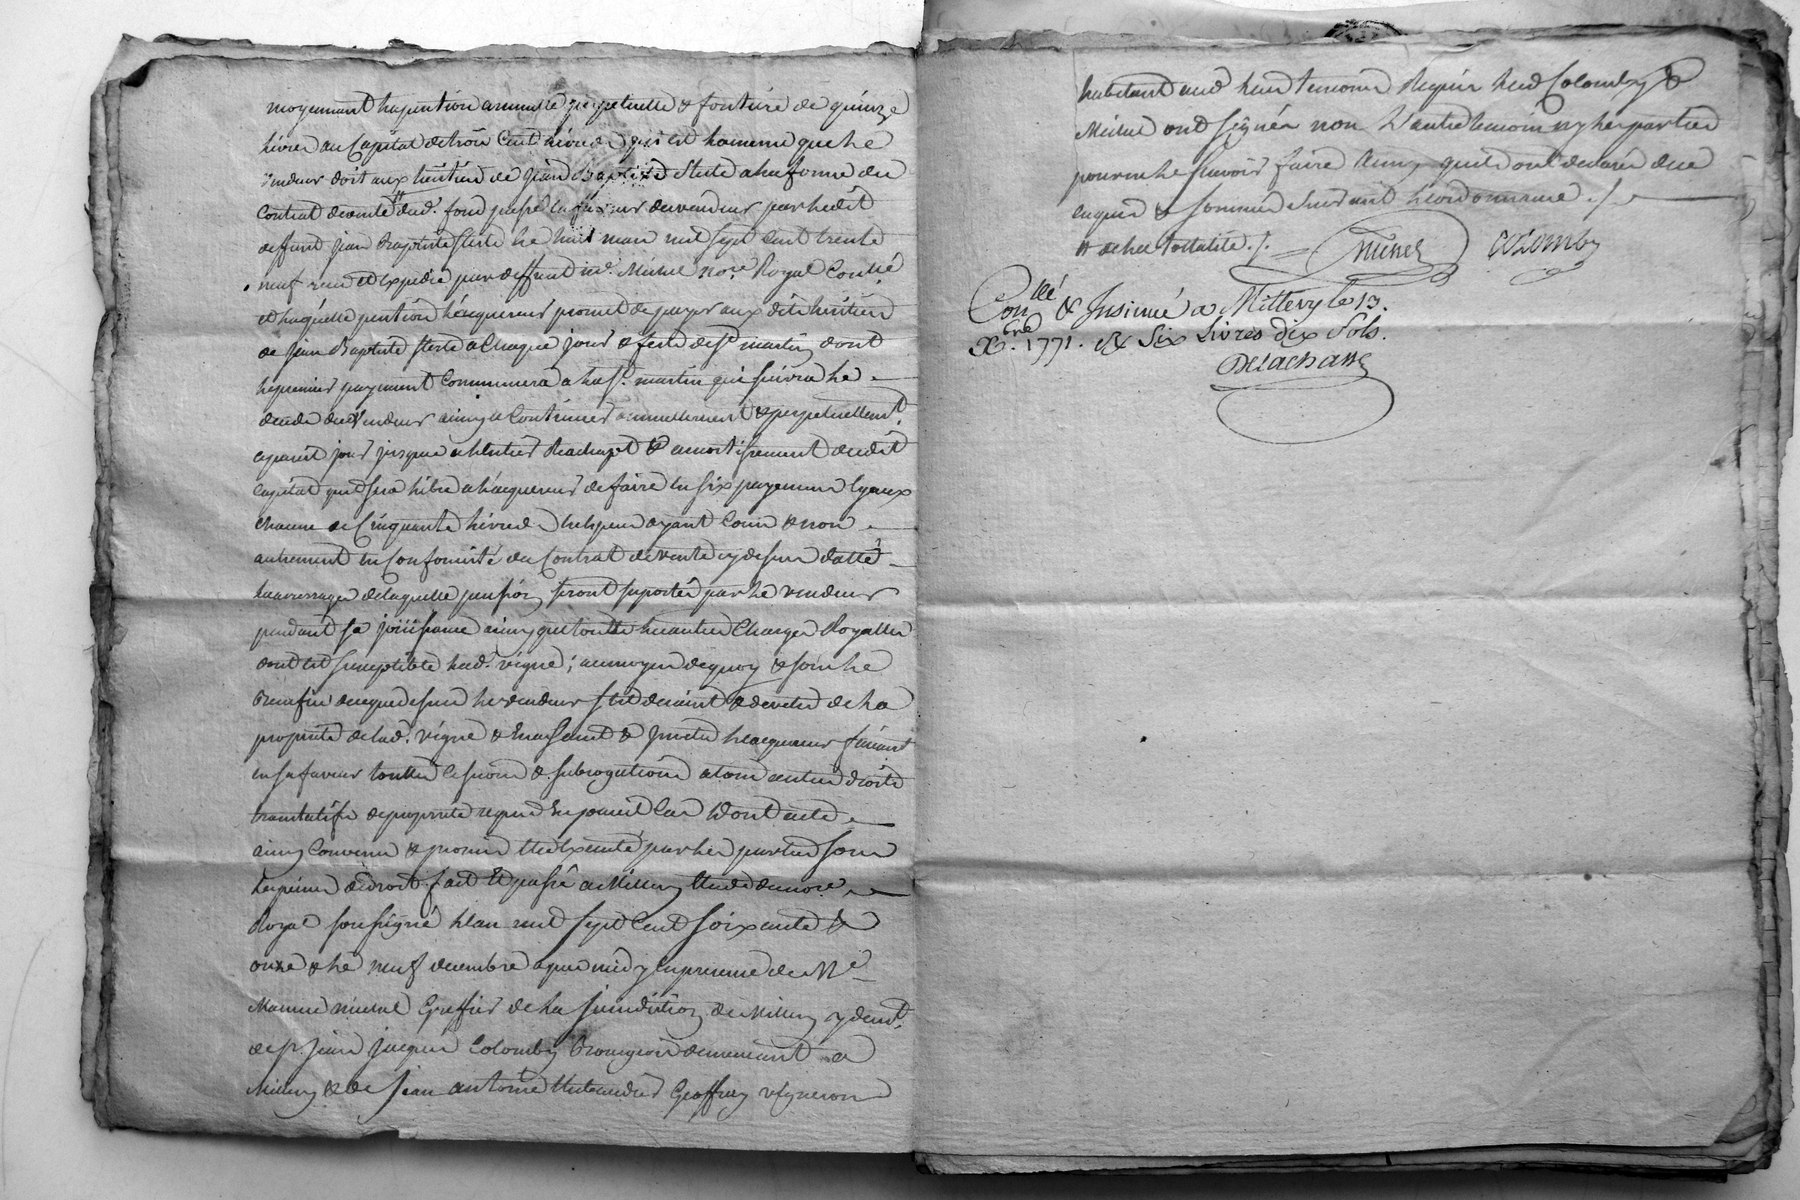 moyenant la pention annuelle perpetuelle & fonciere de quinze
livres au Capital de trois Cent livres qui est la somme que le
vendeur doit aux heritiers de Jean Baptiste a la forme du
Contrat de vente dud. fond passé au vendeur par ledit
deffunt jean Baptiste le huit mars mil sept Cent trente
neuf receu et expedié par deffunt me. Michel nore. Royal Conllé
et laquelle pention l'acquereur promet de payer aux dits heritiers
de jean Baptiste a Chaque jour & feste de st martin dont
le premier payement Commencera a la st. martin qui suivra le
decés du vendeur ainsy a Continuer annuellement & perpetuellemt.
a pareil jour jusques a l'entier Rachapt & amortissement dudit
Capital qui sera libre a l'acquereur de faire en six payements egaux
chacun de Cinquante livres ayant Cour & non
autrement en Conformité du Contrat de vente cy dessus datté
les arrerages de laquelle pension seront suportés par le vendeur
pendant sa jouissance ainsy que toutes les autres Charges Royalles
dont est susceptible lad. vigne; au moyen de quoy & sous le
Benefice de ce que dessus le vendeur s'est demis & devetu de la
proprieté de lad. vigne & en a saisi & investu l'acquereur faisant
en sa faveur toutes cessions & subrogations a tous autres droits
translatifs de proprieté requis En pareil Cas Dont acte
ainsy Convenu & promis etre Executé par les parties sous
les peines de droit fait Et passé a Millery Etude du nore.
Royal soussigné l'an mil sept Cent soixante &
onze & le neuf decembre apres midy en presence de Me
michel Greffier de la jurisdiction de Millery y demt.
de sr. jean jacques Colomby Bourgeois demeurant a
Millery & de jean antoine Geoffray vigneron
habitant aud. lieu temoins Requis led. Colomby &
Michel ont signés non l'autre temoin ny les parties
pour ne le scavoir faire Ainsy qu'ils ont declaré de ce
enquis & sommés suivant l'ordonnance ./.
& de la totalité ./. Michel Colomby
Conllé & Insinué a Millery le 13.
Xbre. 1771. R Six Livres dix Sols.
Delachassé